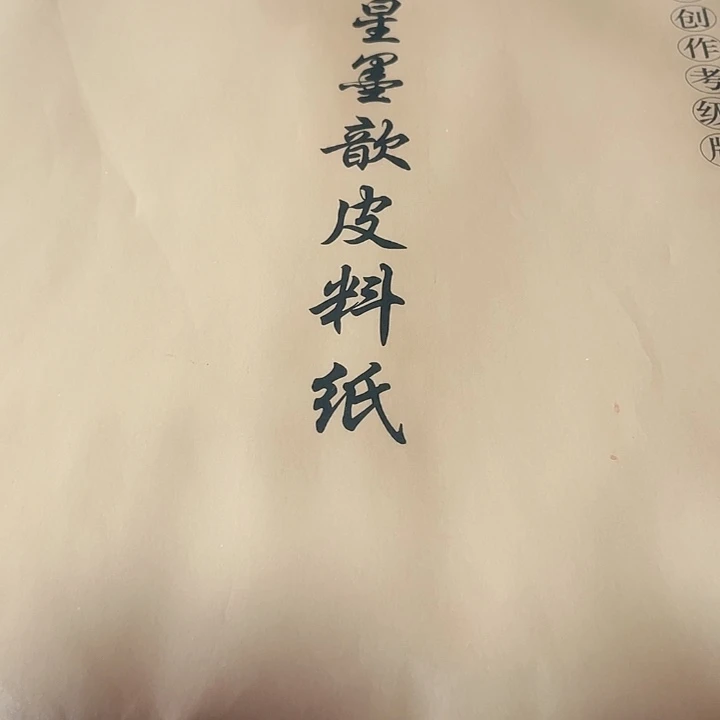 创作考级版
星墨歆皮料纸